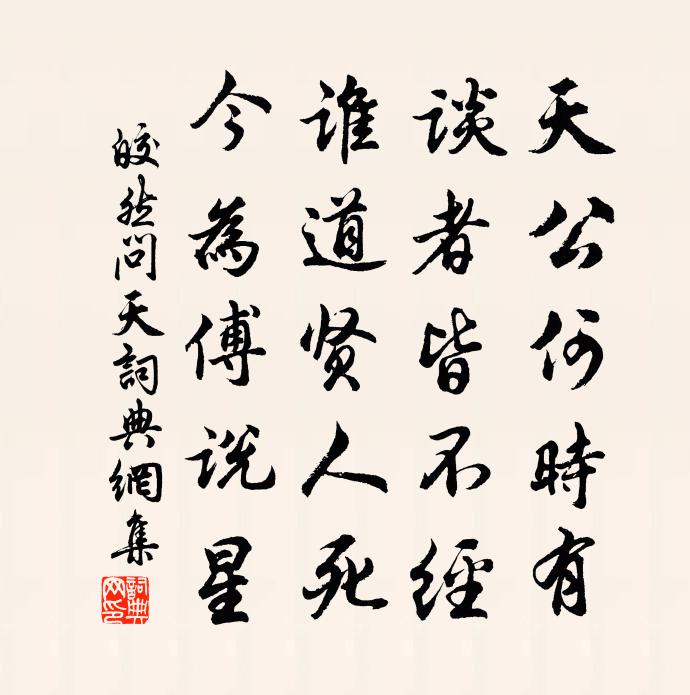 天公何時有
談者皆不經
誰道贤人死
今為傅说星
皎然问天詞典網集
詞典网印